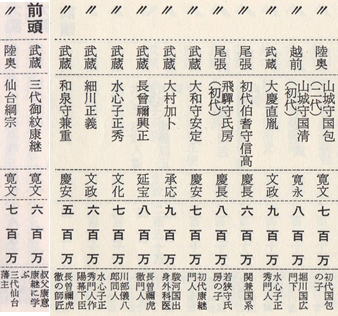 〃 陸奥 山城守国包(二代) 寛文 七百万 初代国包の子
〃 越前 山城守国清(初代) 寛永 八百万 堀川国広門下
〃 武蔵 大慶直胤 文政 九百万 水心子正秀門人
〃 尾張 初代伯耆守信高 慶長 六百万 関兼国系
〃 尾張 飛騨守氏房(初代) 慶長 八百万 若狭守氏房の子
〃 武蔵 大和守安定 慶安 七百万 初代康継門人
〃 武蔵 大村加卜 承応 九百万 駿河国出身外科医
〃 武蔵 長曽禰興正 延宝 八百万 長曽禰虎徹門人
〃 武蔵 水心子正秀 文化 七百万 川部儀八郎同人
〃 武蔵 細川正義 文政 六百万 水心子正秀門人作陽幕下臣
〃 武蔵 和泉守兼重 慶安 五百万 長曽禰虎徹の師匠
前頭 武蔵 三代御紋康継 寛文 六百万 叔父康意康継に学ぶ
〃 陸奥 仙台綱宗 寛文 七百万 三代仙台藩主